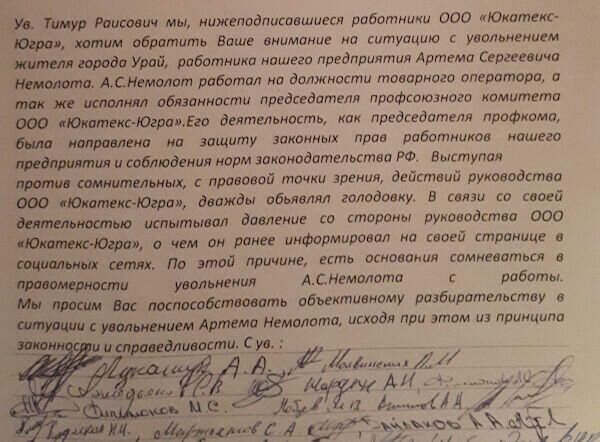 Ув. Тимур Раисович мы, нижеподписавшиеся работники ООО «Юкатекс-
Югра», хотим обратить Ваше внимание на ситуацию с увольнением
жителя города Урай, работника нашего предприятия Артема Сергеевича
Немолота. А.С.Немолот работал на должности товарного оператора, а
так же исполнял обязанности председателя профсоюзного комитета
ООО «Юкатекс-Югра».Его деятельность, как председателя профкома,
была направлена на защиту законных прав работников нашего
предприятия и соблюдения норм законодательства РФ. Выступая
против сомнительных, с правовой точки зрения, действий руководства
ООО «Юкатекс-Югра», дважды обьявлял голодовку. В связи со своей
деятельностью испытывал давление со стороны руководства ООО
«Юкатекс-Югра», о чем он ранее информировал на своей странице в
социальных сетях. По этой причине, есть основания сомневаться в
правомерности увольнения А.С.Немолота с работы.
Мы просим Вас поспособствовать объективному разбирательству в
ситуации с увольнением Артема Немолота, исходя при этом из принципа
законности и справедливости. С ув. :
А.А.